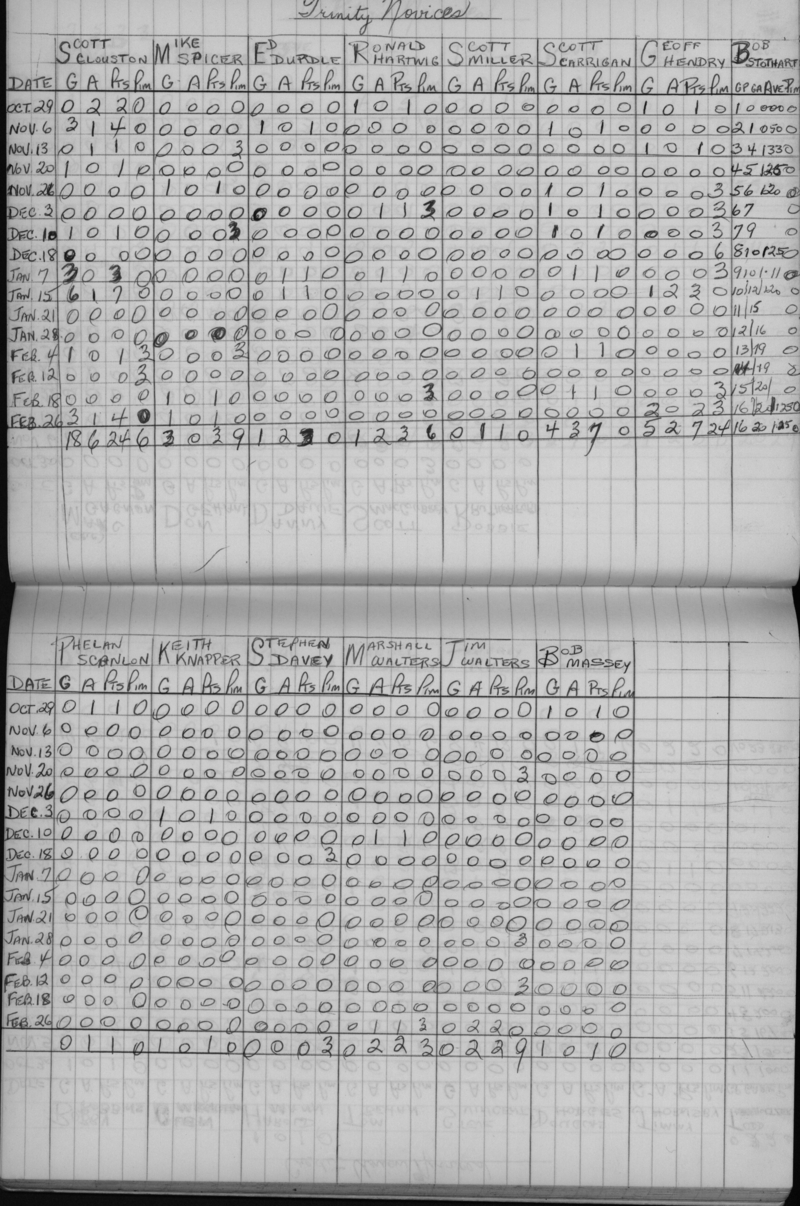 Trinity Novices
SCOTT CLOUSTON MIKE SPICER ED DURDLE RONALD HARTWIG SCOTT MILLER SCOTT CARRIGAN GEOFF HENDRY BOB STOTHART
DATE G A Pts Pim G A Pts Pim G A Pts Pim G A Pts Pim G A Pts Pim G A Pts Pim G A Pts Pim GP GA AVE Pim
OCT. 29 0 2 2 0 0 0 0 0 0 0 0 0 1 0 1 0 0 0 0 0 0 0 0 0 1 0 1 0 1 0 000 0
NOV. 6 3 1 4 0 0 0 0 0 1 0 1 0 0 0 0 0 0 0 0 0 1 0 1 0 0 0 0 0 2 1 050 0
NOV. 13 0 1 1 0 0 0 0 3 0 0 0 0 0 0 0 0 0 0 0 0 0 0 0 0 1 0 1 0 3 4 133 0
NOV. 20 1 0 1 0 0 0 0 0 0 0 0 0 0 0 0 0 0 0 0 0 0 0 0 0 0 0 0 0 4 5 125 0
NOV. 26 0 0 0 0 1 0 1 0 0 0 0 0 0 0 0 0 0 0 0 0 1 0 1 0 0 0 0 3 5 6 120 0
DEC. 3 0 0 0 0 0 0 0 0 0 0 0 0 0 1 1 3 0 0 0 0 1 0 1 0 0 0 0 3 6 7 0
DEC. 10 1 0 1 0 0 0 0 3 0 0 0 0 0 0 0 0 0 0 0 0 1 0 1 0 0 0 0 3 7 9 0
DEC. 18 0 0 0 0 0 0 0 0 0 0 0 0 0 0 0 0 0 0 0 0 0 0 0 0 0 0 0 6 8 10 125 0
JAN. 7 3 0 3 0 0 0 0 0 0 1 1 0 0 1 1 0 0 0 0 0 0 1 1 0 0 0 0 3 9 10 1.11 0
JAN. 15 6 1 7 0 0 0 0 0 0 1 1 0 0 0 0 0 0 1 1 0 0 0 0 0 1 2 3 0 10 12 120 0
JAN. 21 0 0 0 0 0 0 0 0 0 0 0 0 0 0 0 0 0 0 0 0 0 0 0 0 0 0 0 0 11 15 0
JAN. 28 0 0 0 0 0 0 0 0 0 0 0 0 0 0 0 0 0 0 0 0 0 0 0 0 0 0 0 0 12 16 0
FEB. 4 1 0 1 3 0 0 0 3 0 0 0 0 0 0 0 0 0 0 0 0 0 1 1 0 0 0 0 0 13 19 0
FEB. 12 0 0 0 3 0 0 0 0 0 0 0 0 0 0 0 0 0 0 0 0 0 0 0 0 0 0 0 0 14 19
FEB. 18 0 0 0 0 1 0 1 0 0 0 0 0 0 0 0 3 0 0 0 0 0 1 1 0 0 0 0 3 15 20 0
FEB. 26 3 1 4 0 1 0 1 0 0 0 0 0 0 0 0 0 0 0 0 0 0 0 0 0 2 0 2 3 16 1250
18 6 24 6 3 0 3 9 1 2 3 0 1 2 3 6 0 1 1 0 4 3 7 0 5 2 7 24 16 20 1.25 0
PHELAN SCANLON KEITH KNAPPER STEPHEN DAVEY MARSHALL WALTERS JIM WALTERS BOB MASSEY
DATE G A Pts Pim G A Pts Pim G A Pts Pim G A Pts Pim G A Pts Pim G A Pts Pim
OCT. 29 0 1 1 0 0 0 0 0 0 0 0 0 0 0 0 0 0 0 0 0 1 0 1 0
NOV. 6 0 0 0 0 0 0 0 0 0 0 0 0 0 0 0 0 0 0 0 0 0 0 0 0
NOV. 13 0 0 0 0 0 0 0 0 0 0 0 0 0 0 0 0 0 0 0 0 0 0 0 0
NOV. 20 0 0 0 0 0 0 0 0 0 0 0 0 0 0 0 0 0 0 0 3 0 0 0 0
NOV 26 0 0 0 0 0 0 0 0 0 0 0 0 0 0 0 0 0 0 0 0 0 0 0 0
DEC. 3 0 0 0 0 1 0 1 0 0 0 0 0 0 0 0 0 0 0 0 0 0 0 0 0
DEC. 10 0 0 0 0 0 0 0 0 0 0 0 0 0 1 1 0 0 0 0 0 0 0 0 0
DEC. 18 0 0 0 0 0 0 0 0 0 0 0 3 0 0 0 0 0 0 0 0 0 0 0 0
JAN. 7 0 0 0 0 0 0 0 0 0 0 0 0 0 0 0 0 0 0 0 0 0 0 0 0
JAN. 15 0 0 0 0 0 0 0 0 0 0 0 0 0 0 0 0 0 0 0 0 0 0 0 0
JAN. 21 0 0 0 0 0 0 0 0 0 0 0 0 0 0 0 0 0 0 0 0 0 0 0 0
JAN. 28 0 0 0 0 0 0 0 0 0 0 0 0 0 0 0 0 0 0 0 3 0 0 0 0
FEB 4 0 0 0 0 0 0 0 0 0 0 0 0 0 0 0 0 0 0 0 0 0 0 0 0
FEB. 12 0 0 0 0 0 0 0 0 0 0 0 0 0 0 0 0 0 0 0 3 0 0 0 0
FEB. 18 0 0 0 0 0 0 0 0 0 0 0 0 0 0 0 0 0 0 0 0 0 0 0 0
FEB. 26 0 0 0 0 0 0 0 0 0 0 0 0 0 1 1 3 0 2 2 0 0 0 0 0
0 1 1 0 1 0 1 0 0 0 0 3 0 2 2 3 0 2 2 9 1 0 1 0